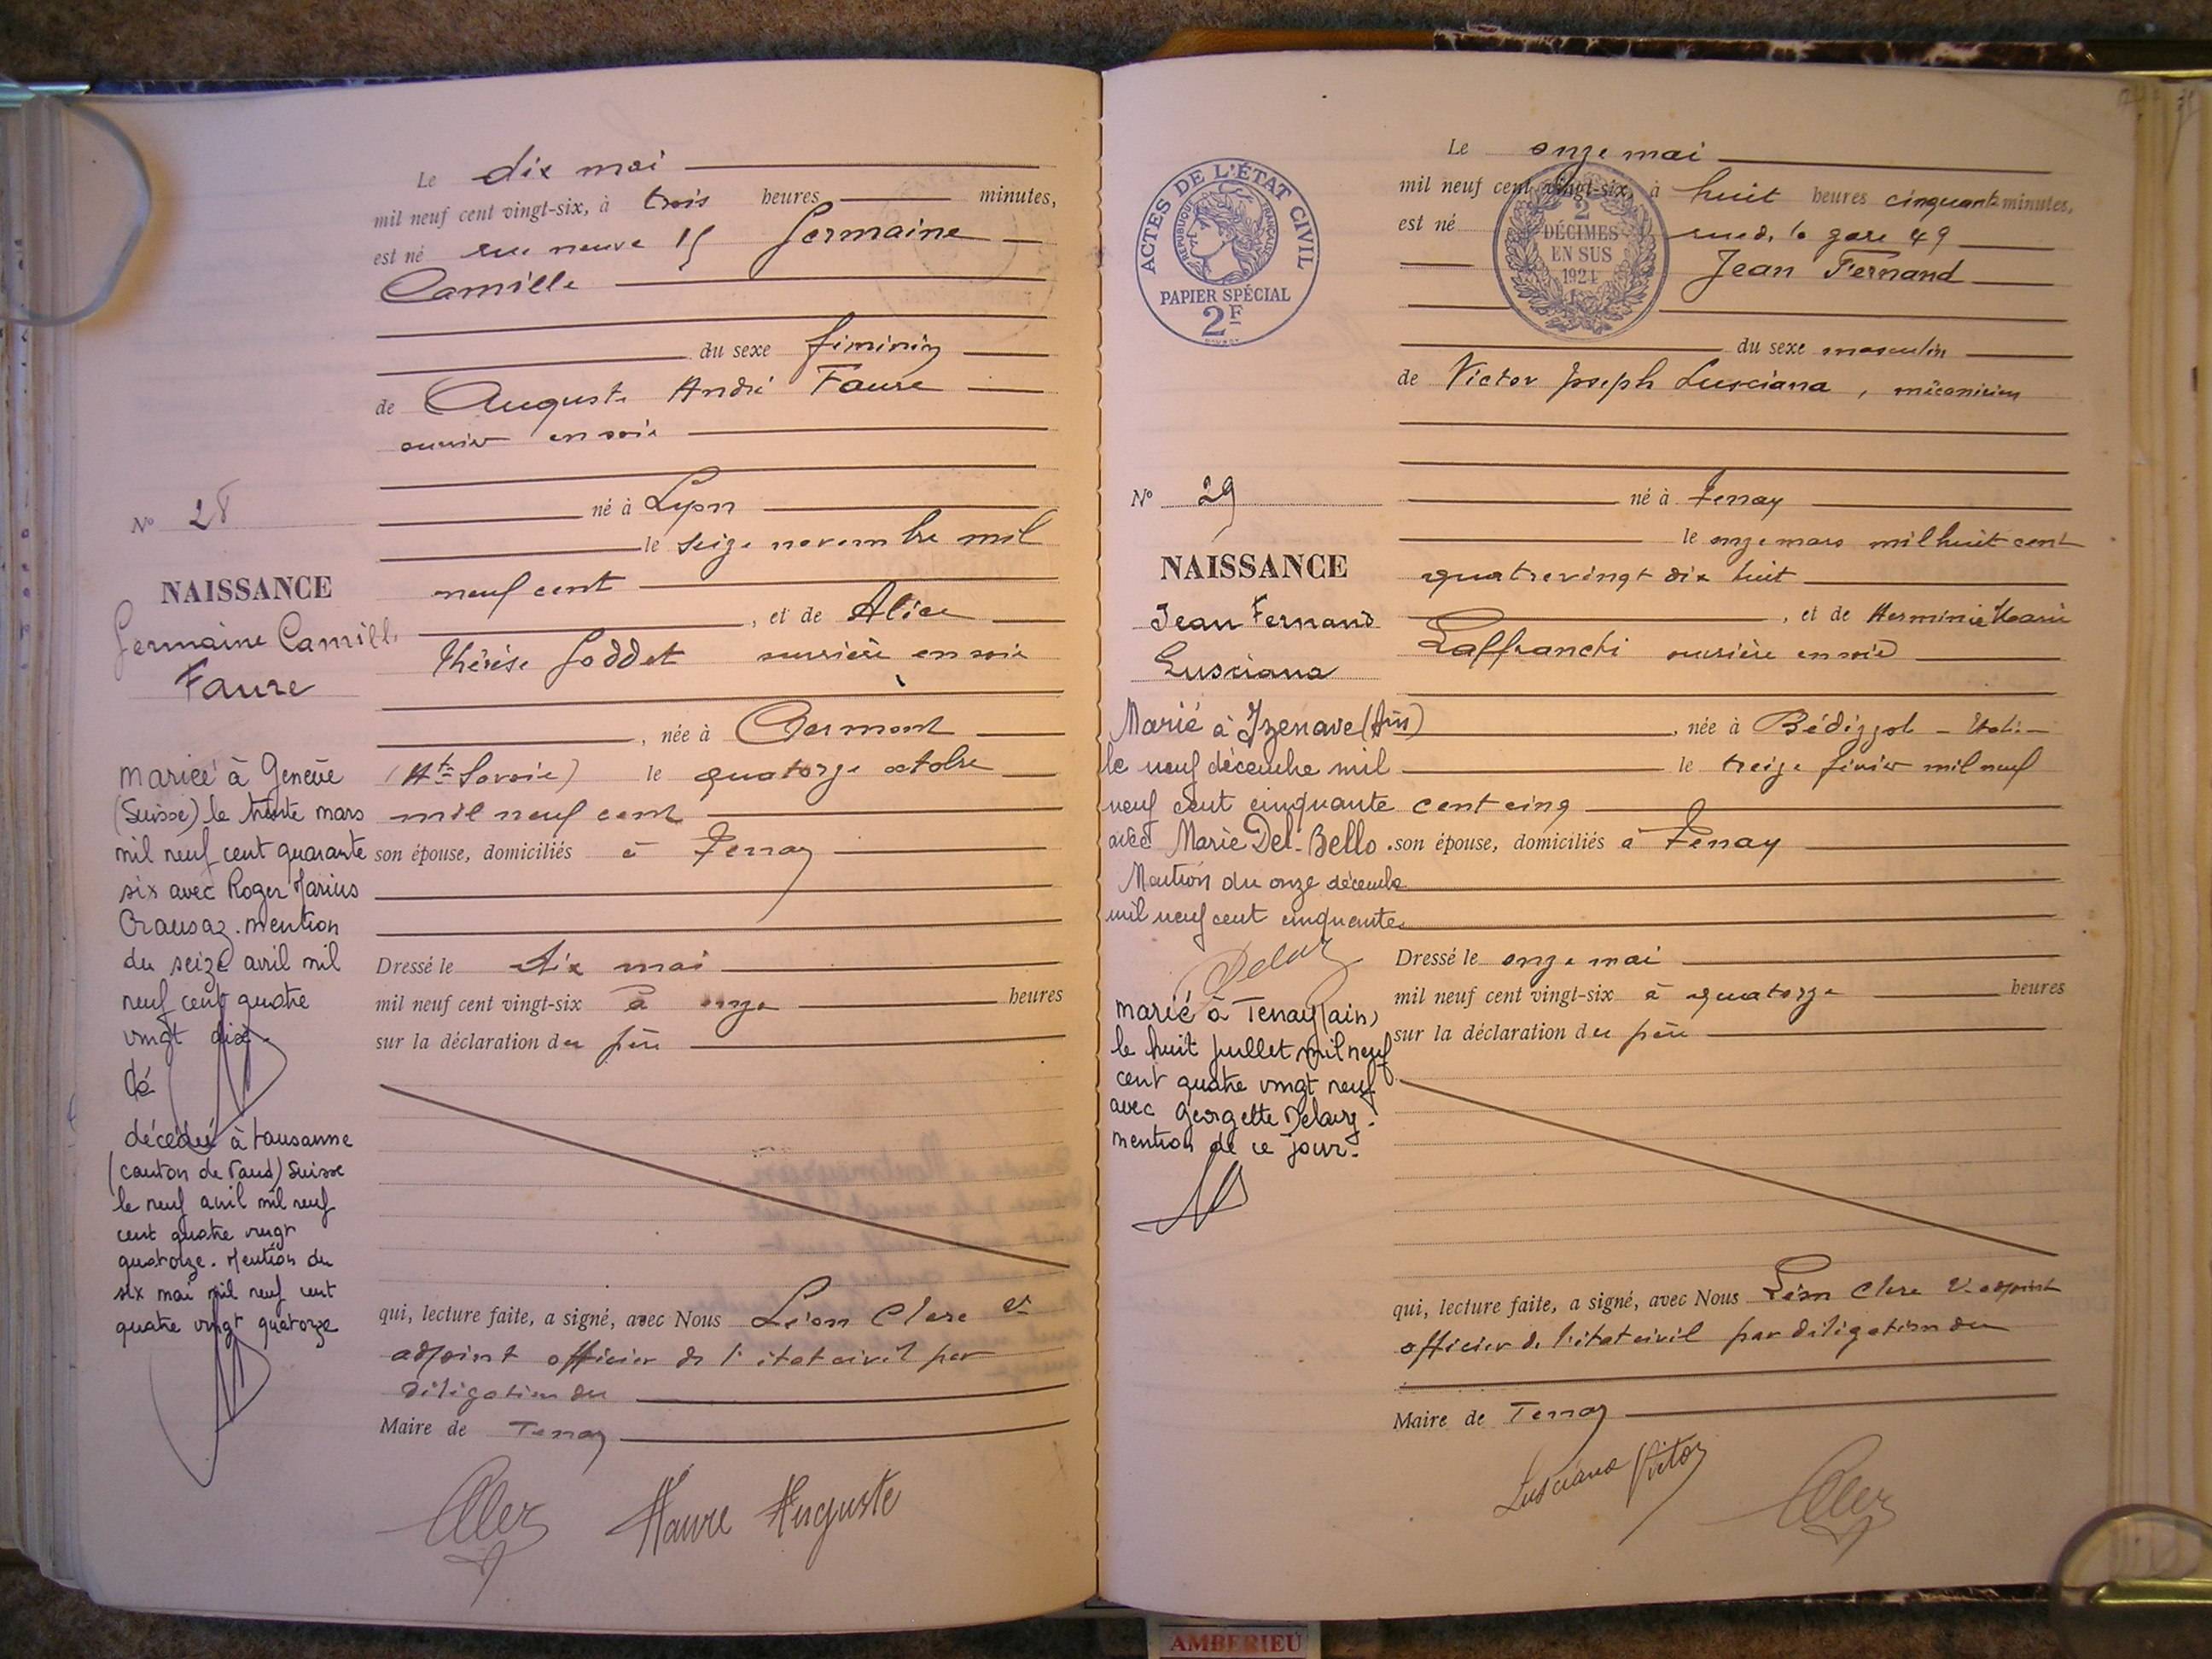 Le dix mai
mil neuf cent vingt-six, à trois heures minutes,
est né rue neuve 15 Germaine
Camille
du sexe féminin
de Auguste André Faure
ouvrier en soie
né à Lyon
le seize novembre mil
neuf cent
, et de Alice
Thérèse Goddet ouvrière en soie
, née à Clermont
(Hte Savoie) le quatorze octobre
mil neuf cent
son épouse, domiciliés à Tenay
Dressé le dix mai
mil neuf cent vingt-six à onze heures
sur la déclaration du père
qui, lecture faite, a signé, avec Nous Léon Clerc
adjoint officier de l'état civil par
délégation du
Maire de Tenay
Faure Auguste
N° 28
NAISSANCE
Germaine Camille
Faure
mariée à Genève
(Suisse) le trente mars
mil neuf cent quarante
six avec Roger Marius
Crausaz. mention
du seize avril mil
neuf cent quatre
vingt dix.
dé
décédée à Lausanne
(canton de Vaud) Suisse
le neuf avril mil neuf
cent quatre vingt
quatorze. Mention du
six mai mil neuf cent
quatre vingt quatorze
ACTES DE L'ÉTAT CIVIL
RÉPUBLIQUE FRANÇAISE
PAPIER SPÉCIAL
2F
2
DÉCIMES
EN SUS
1924
Le onze mai
mil neuf cent vingt-six, à huit heures cinquante minutes,
est né rue de la gare 49
Jean Fernand
du sexe masculin
de Victor Joseph Lusciana, mécanicien
né à Tenay
le onze mars mil huit cent
quatre vingt dix huit
, et de Herminie Marie
Laffranchi ouvrière en soie
, née à Bédizzol - Italie
le treize février mil neuf
cent cinq
son épouse, domiciliés à Tenay
Dressé le onze mai
mil neuf cent vingt-six à quatorze heures
sur la déclaration du père
qui, lecture faite, a signé, avec Nous Léon Clerc V. adjoint
officier de l'état civil par délégation du
Maire de Tenay
Lusciana Victor
N° 29
NAISSANCE
Jean Fernand
Lusciana
Marié à Izenave (Ain)
le neuf décembre mil
neuf cent cinquante
avec Marie Del-Bello.
Mention du onze décembre
mil neuf cent cinquante.
marié à Tenay (ain)
le huit juillet mil neuf
cent quatre vingt neuf
avec Georgette
mention de ce jour.
AMBERIEU